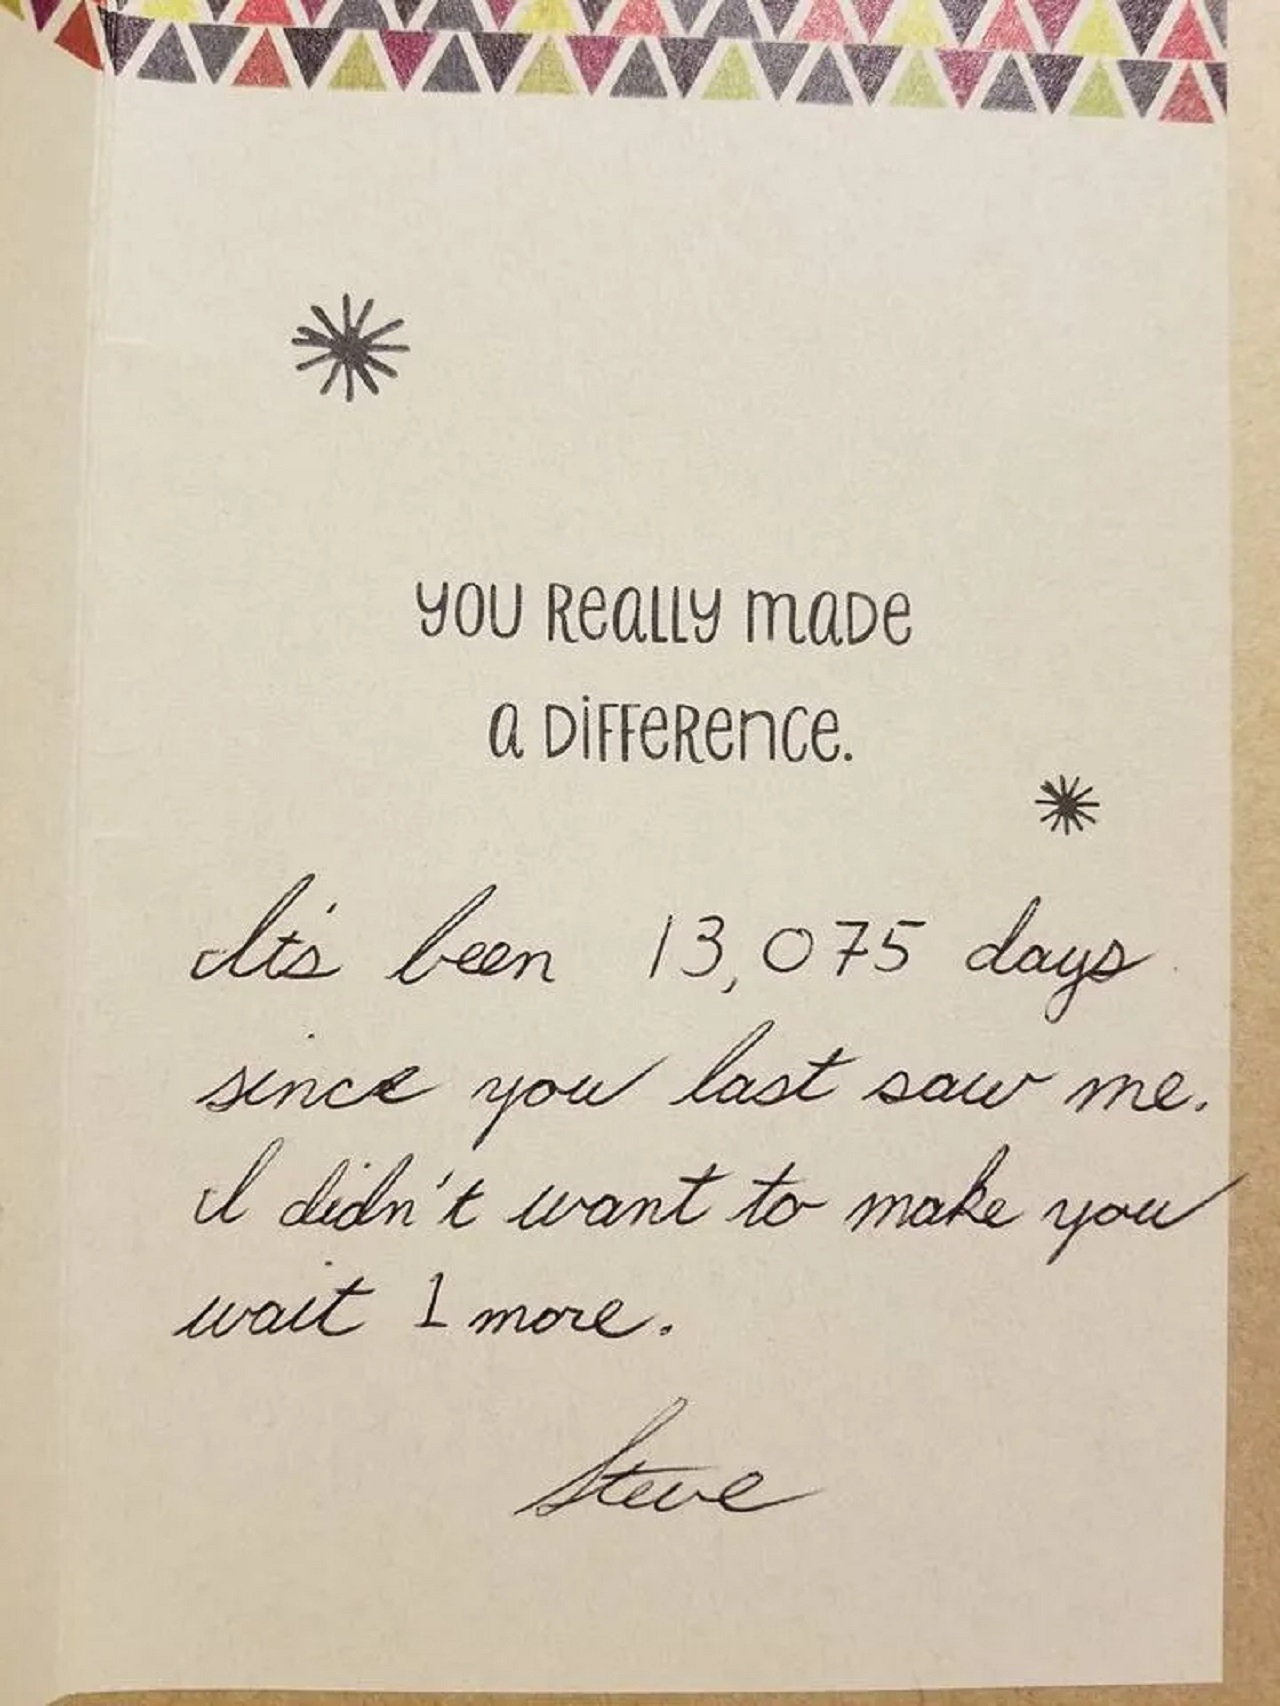 YOU REALLY MADE
A DIFFERENCE.
It's been 13,075 days
since you last saw me.
I didn't want to make you
wait 1 more.
Steve